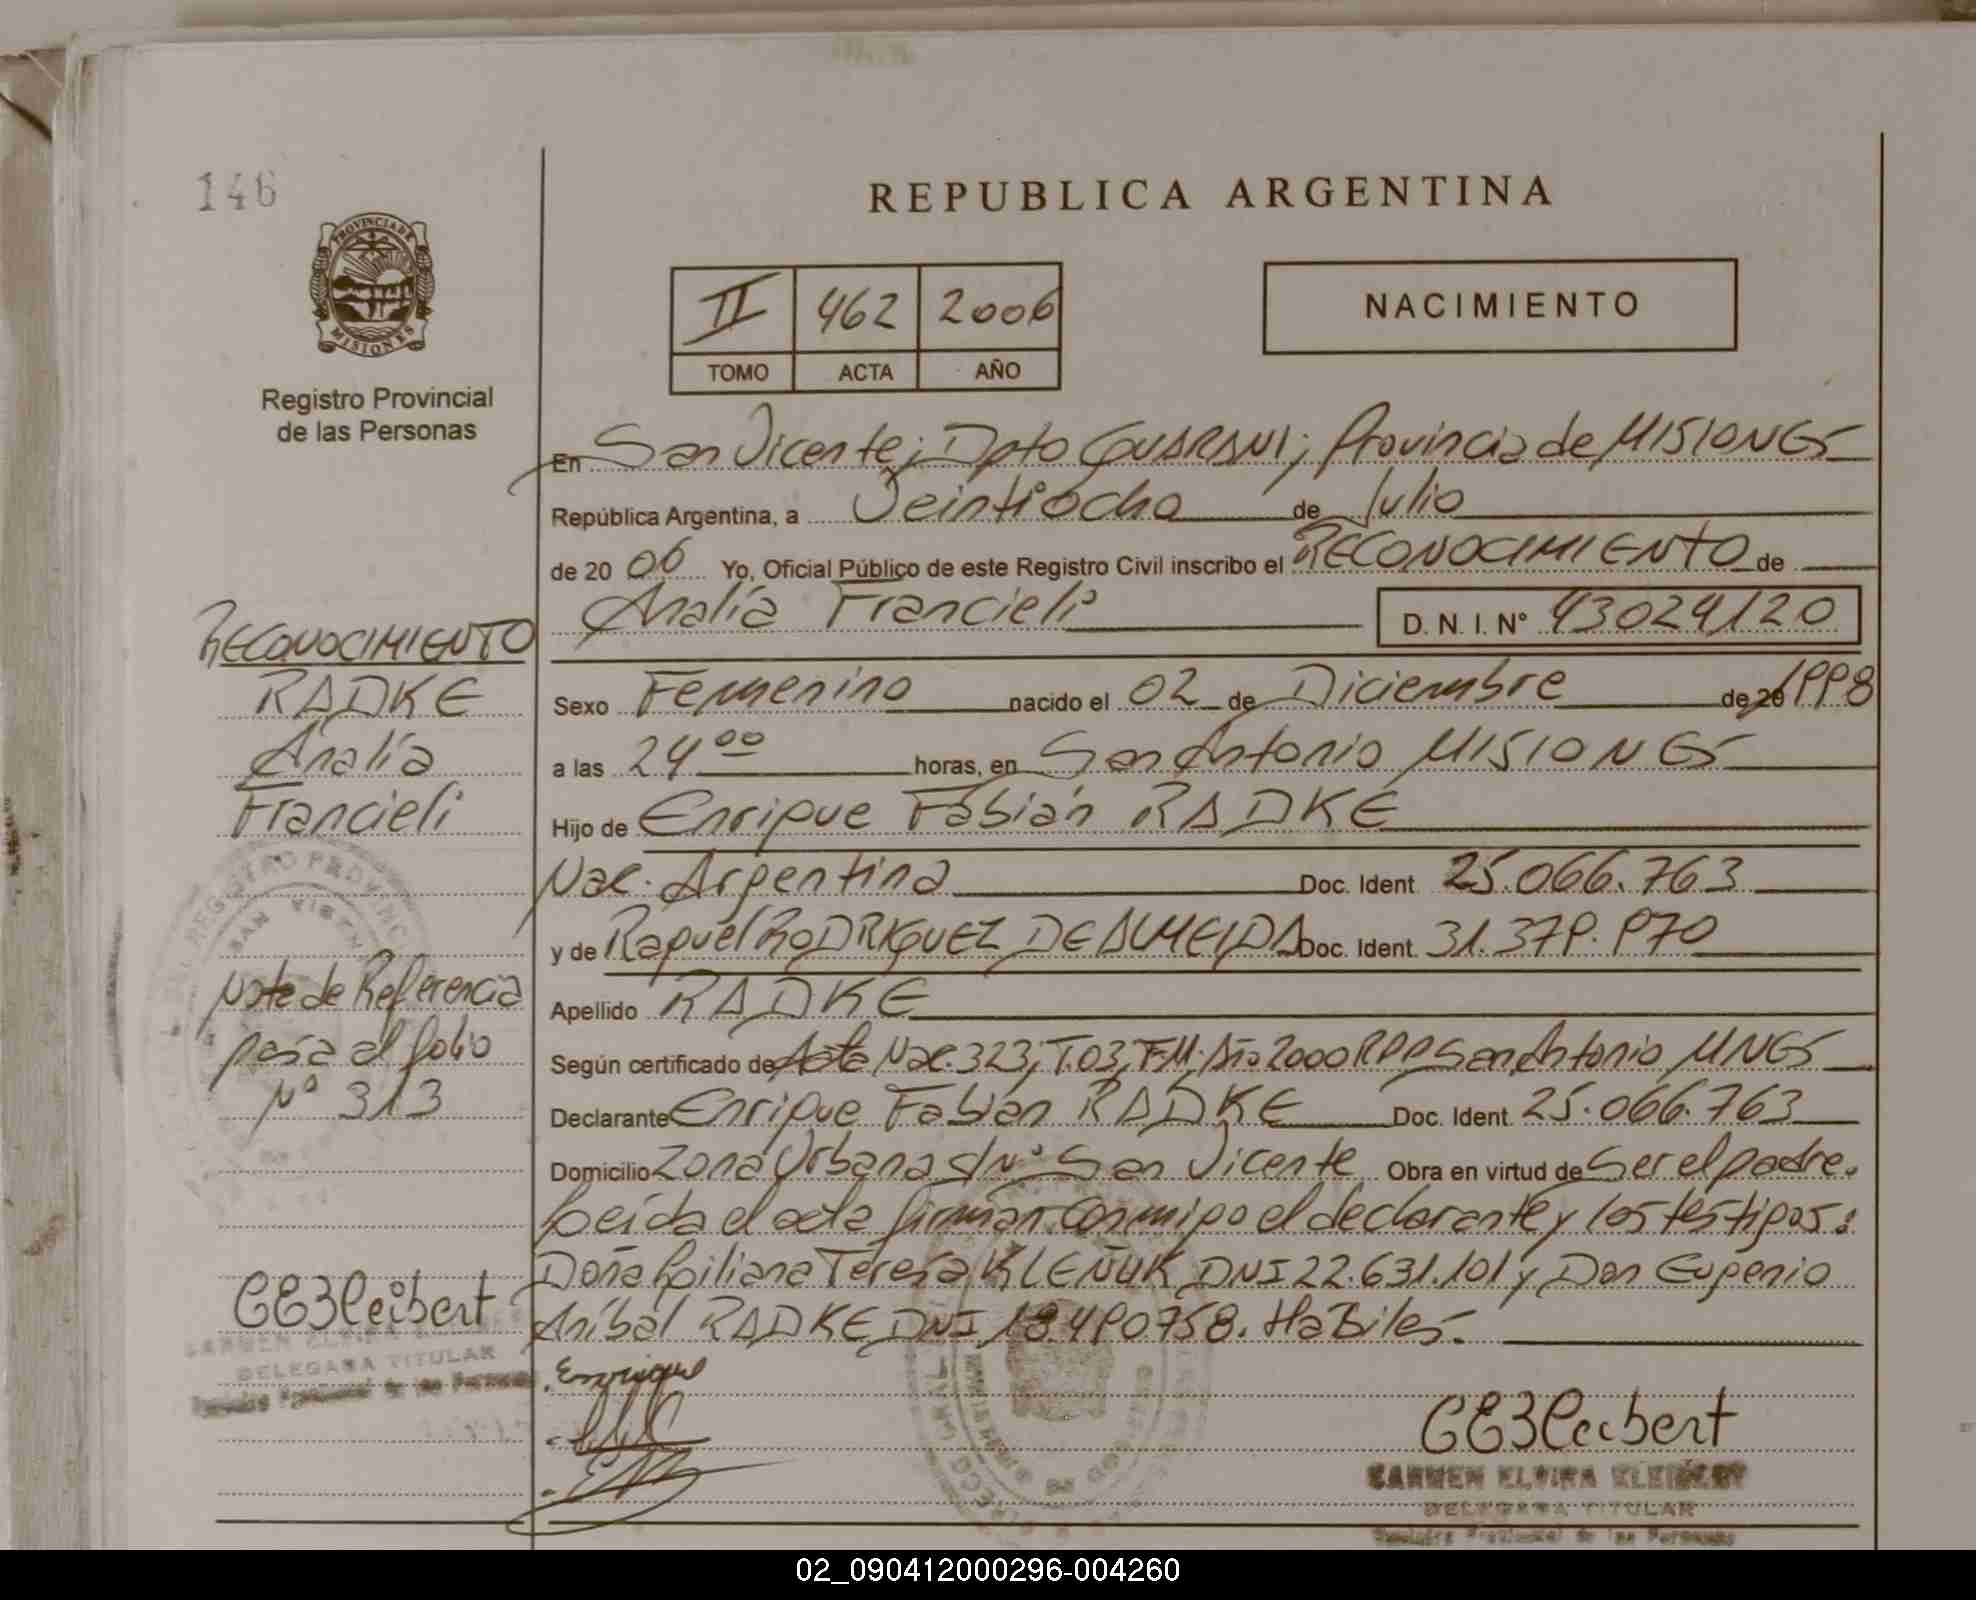 146
REPUBLICA ARGENTINA
PROVINCIA DE
MISIONES
Registro Provincial
de las Personas
II 462 2006
TOMO ACTA AÑO
NACIMIENTO
En San Vicente; Dpto GUARANI; Provincia de MISIONES
República Argentina, a Veintiocho de Julio
de 20 06 Yo, Oficial Público de este Registro Civil inscribo el RECONOCIMIENTO de
Analía Francieli D. N. I. N° 43024120
Sexo Femenino nacido el 02 de Diciembre de 20 1998
a las 24 00 horas, en San Antonio MISIONES
Hijo de Enrique Fabián RADKE
Nac. Argentina Doc. Ident 25.066.763
y de Raquel RODRIGUEZ DE ALMEIDA Doc. Ident. 31.379.970
Apellido RADKE
Según certificado de Acta Nac. 323, T. 03, F.M. Año 2000 RPP San Antonio MNES
Declarante Enrique Fabian RADKE Doc. Ident. 25.066.763
Domicilio Zona Urbana s/N° San Vicente Obra en virtud de Ser el padre.
Leída el acta firman conmigo el declarante y los testigos:
Doña Liliana Teresa KLEÑUK DNI 22.631.101 y Don Eugenio
Aníbal RADKE DNI 18.490758. Habiles.
Enrique
CE3Leibert
CARMEN ELVIRA KLEIBERT
DELEGADA TITULAR
Registro Provincial de las Personas
RECONOCIMIENTO
RADKE
Analía
Francieli
REGISTRO PROVINC
SAN VICEN
Nota de Referencia
pasa al folio
N° 313
CE3Leibert
CARMEN ELVIRA
DELEGADA TITULAR
Registro Provincial de las Personas
02_090412000296-004260